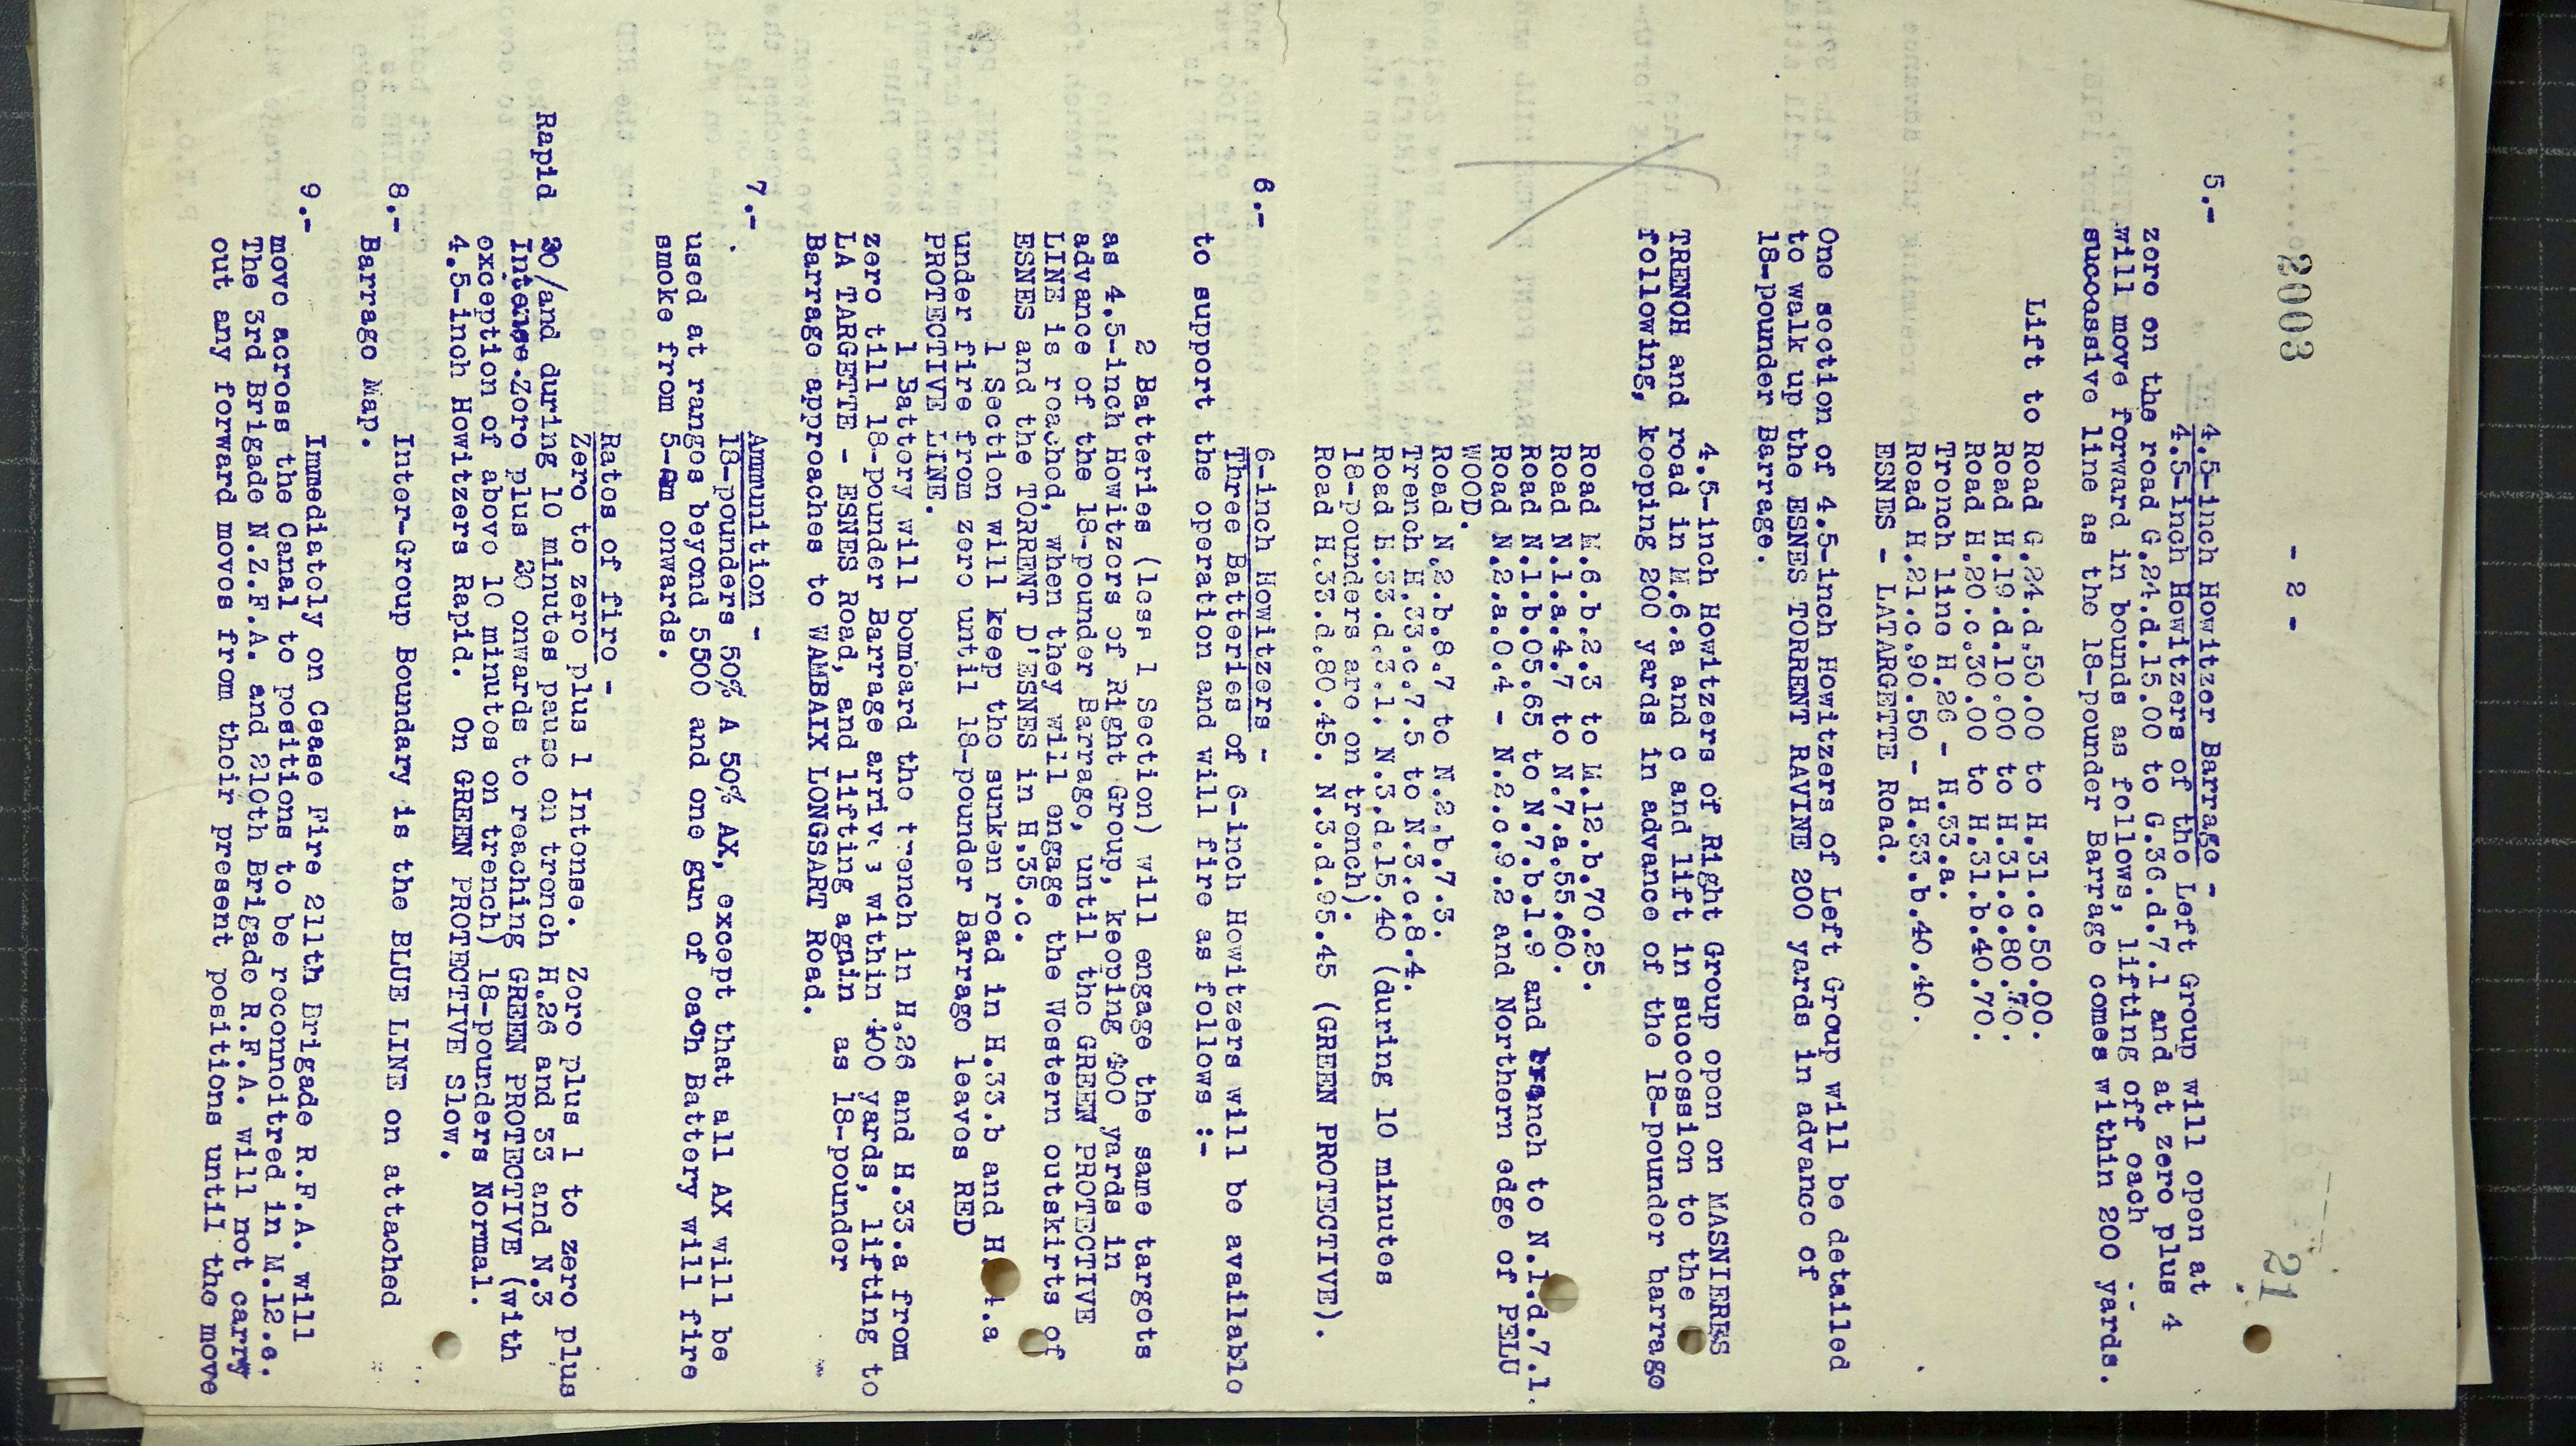 2003
- 2 -
21
5.- 4.5-inch Howitzer Barrage -
4.5-inch Howitzers of the Left Group will open at
zero on the road G.24.d.15.00 to G.36.d.7.1 and at zero plus 4
will move forward in bounds as follows, lifting off each
successive line as the 18-pounder Barrage comes within 200 yards.
Lift to Road G.24.d.50.00 to H.31.c.50.00.
Road H.19.d.10.00 to H.31.c.80.70.
Road H.20.c.30.00 to H.31.b.40.70.
Trench line H.26 - H.33.a.
Road H.21.c.90.50 - H.33.b.40.40.
ESNES - LATARGETTE Road.
One section of 4.5-inch Howitzers of Left Group will be detailed
to walk up the ESNES TORRENT RAVINE 200 yards in advance of
18-pounder Barrage.
4.5-inch Howitzers of Right Group open on MASNIERES
TRENCH and road in M.6.a and c and lift in succession to the
following, keeping 200 yards in advance of the 18-pounder barrage
Road M.6.b.2.3 to M.12.b.70.25.
Road N.1.a.4.7 to N.7.a.55.60.
Road N.1.b.05.65 to N.7.b.1.9 and branch to N.1.d.7.1.
Road N.2.a.0.4 - N.2.c.9.2 and Northern edge of PELU
WOOD.
Road N.2.b.8.7 to N.2.b.7.3.
Trench H.33.c.7.5 to N.3.c.8.4.
Road H.33.d.3.1. N.3.d.15.40 (during 10 minutes
18-pounders are on trench).
Road H.33.d.80.45. N.3.d.95.45 (GREEN PROTECTIVE).
6.- 6-inch Howitzers -
Three Batteries of 6-inch Howitzers will be available
to support the operation and will fire as follows :-
2 Batteries (less 1 Section) will engage the same targets
as 4.5-inch Howitzers of Right Group, keeping 400 yards in
advance of the 18-pounder Barrage, until the GREEN PROTECTIVE
LINE is reached, when they will engage the Western outskirts of
ESNES and the TORRENT D'ESNES in H.35.c.
1 Section will keep the sunken road in H.33.b and H 4.a
under fire from zero until 18-pounder Barrage leaves RED
PROTECTIVE LINE.
1 Battery will bombard the trench in H.26 and H.33.a from
zero till 18-pounder Barrage arrives within 400 yards, lifting to
LA TARGETTE - ESNES Road, and lifting again as 18-pounder
Barrage approaches to WAMBAIX LONGSART Road.
7.- Ammunition -
18-pounders 50% A 50% AX, except that all AX will be
used at ranges beyond 5500 and one gun of each Battery will fire
smoke from 5-am onwards.
Rates of fire -
Zero to zero plus 1 Intense. Zero plus 1 to zero plus
Rapid 20/and during 10 minutes pause on trench H.26 and 33 and N.3
Intense.Zero plus 20 onwards to reaching GREEN PROTECTIVE (with
exception of above 10 minutes on trench) 18-pounders Normal.
4.5-inch Howitzers Rapid. On GREEN PROTECTIVE Slow.
8.- Inter-Group Boundary is the BLUE LINE on attached
Barrage Map.
9.- Immediately on Cease Fire 211th Brigade R.F.A. will
move across the Canal to positions to be reconnoitred in M.12.a.
The 3rd Brigade N.Z.F.A. and 210th Brigade R.F.A. will not carry
out any forward moves from their present positions until the move